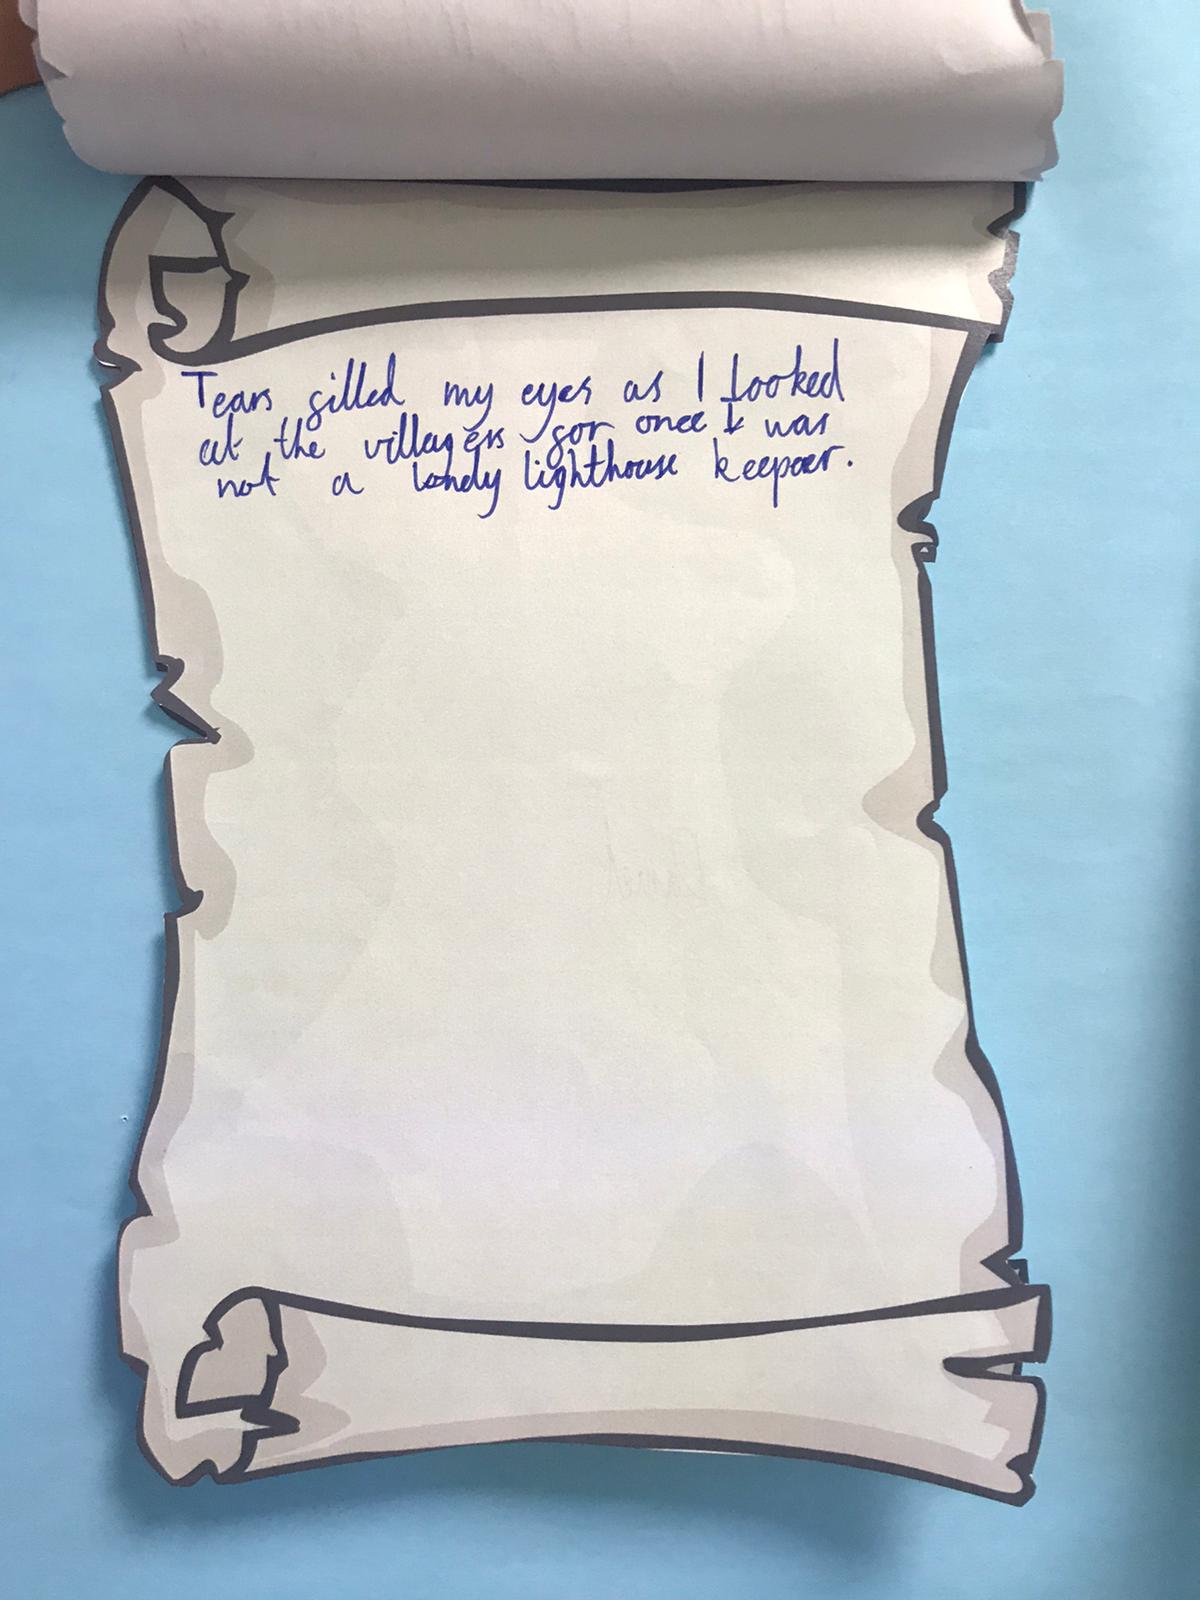 Tears filled my eyes as I looked
at the villagers for once I was
not a lonely lighthouse keeper.